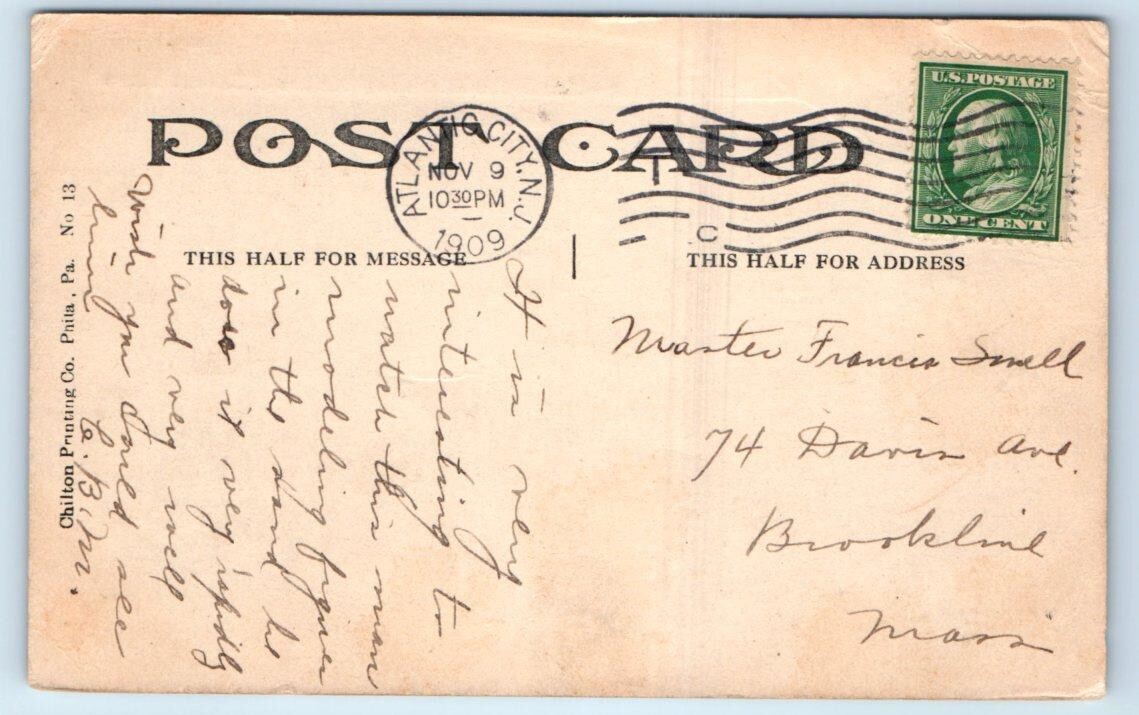 POST CARD
ATLANTIC CITY, N.J.
NOV 9
10 30 PM
1909
C
U.S. POSTAGE
ONE CENT
THIS HALF FOR MESSAGE
THIS HALF FOR ADDRESS
It is very
interesting to
watch this man
modeling figures
in the sand he
does it very rapidly
and very well
Wish you could see
him
C. B. M.
Master Francis Snell
74 Davis Ave.
Brookline
Mass
Chilton Printing Co. Phila, Pa. No 13